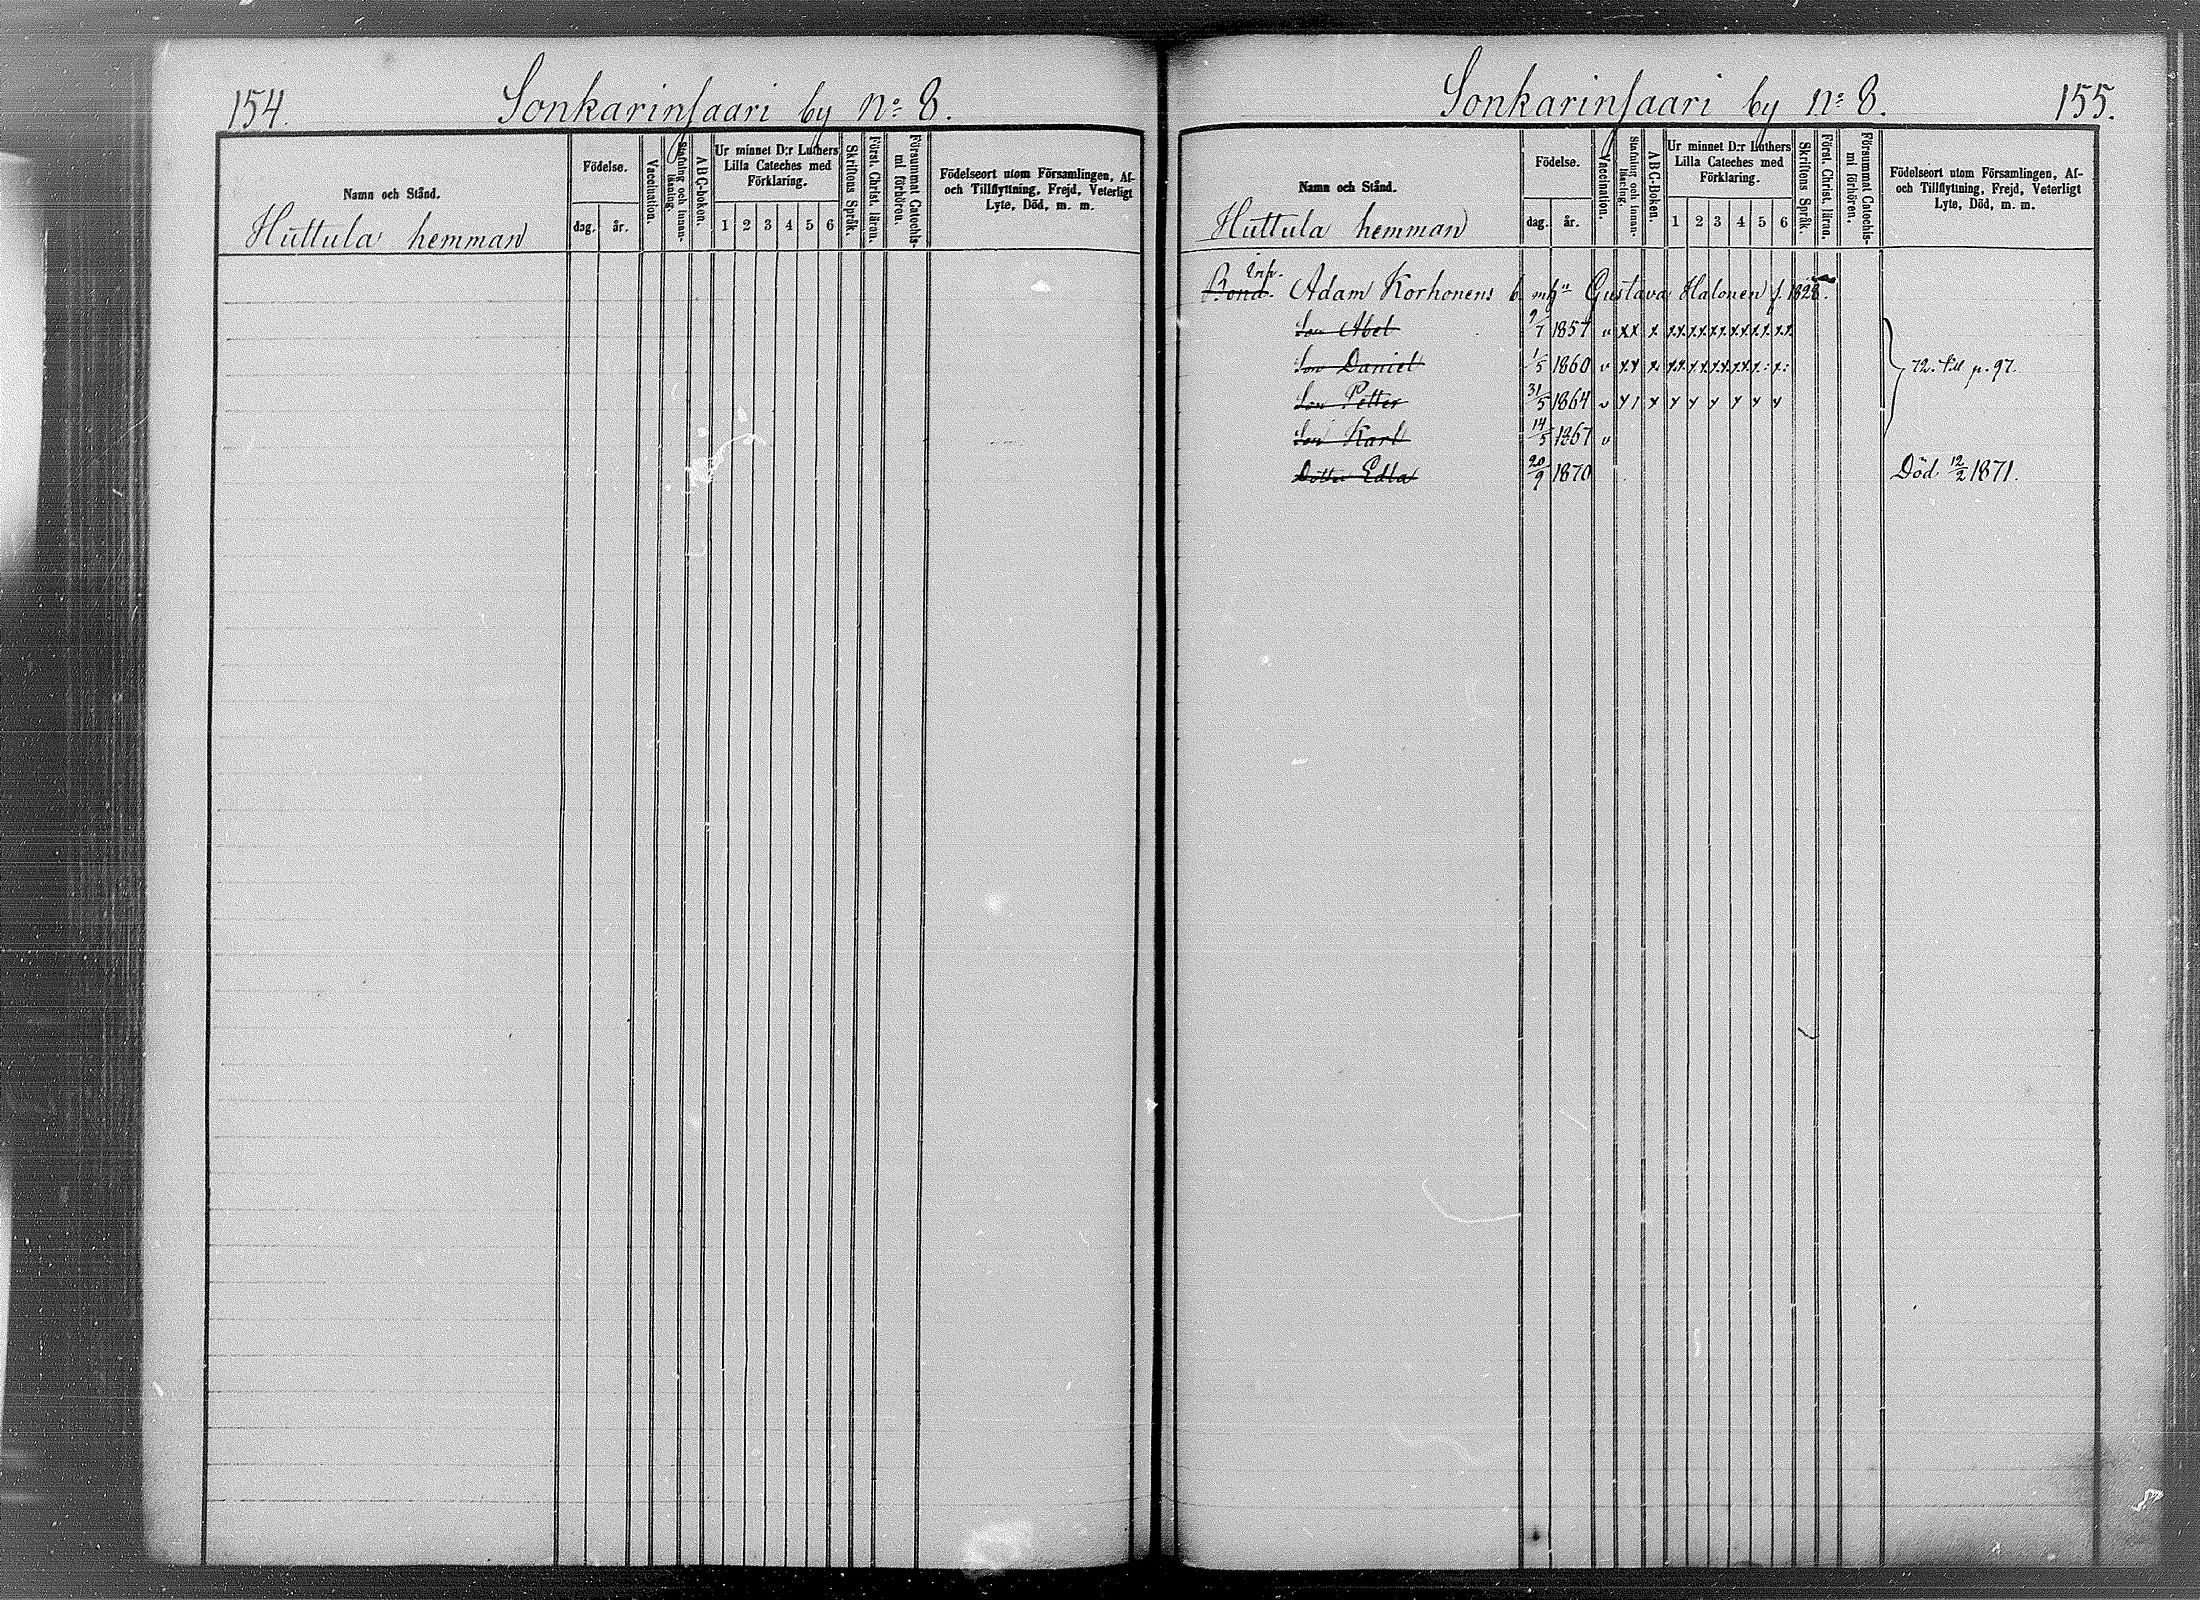 154.
Sonkarinsaari by No 8.
Namn och Stånd.
Huttula hemman
Födelse.
dag.
år.
Vaccination.
Stafning och innanläsning.
ABC-boken.
Ur minnet D:r Luthers
Lilla Cateches med
Förklaring.
1 2 3 4 5 6
Skriftens Språk.
Först. Christ. läran.
Försummat Catechismi förhören.
Födelseort utom Församlingen, Af-
och Tillflyttning, Frejd, Veterligt
Lyte, Död, m. m.
Sonkarinsaari by No 8.
155.
Namn och Stånd.
Huttula hemman
Födelse.
dag.
år.
Vaccination.
Stafning och innanläsning.
ABC-Boken.
Ur minnet D:r Luthers
Lilla Cateches med
Förklaring.
1 2 3 4 5 6
Skriftens Språk.
Först. Christ. läran.
Försummat Catechismi förhören.
Födelseort utom Församlingen, Af-
och Tillflyttning, Frejd, Veterligt
Lyte, Död, m. m.
Inh.
Bond. Adam Korhonens b. m hu Gustava Halonen f. 1828.
Son Abel 9/7 1857 v xx x xx xx xx xx xx xx
Son Daniel 1/5 1860 v xx x xx xx xx xx x: x:
72. till p. 97.
Son Petter 31/5 1864 v x/ x x x x x x x
Son Karl 14/5 1867 v
Dotter Edla 20/9 1870 Död 12/2 1871.